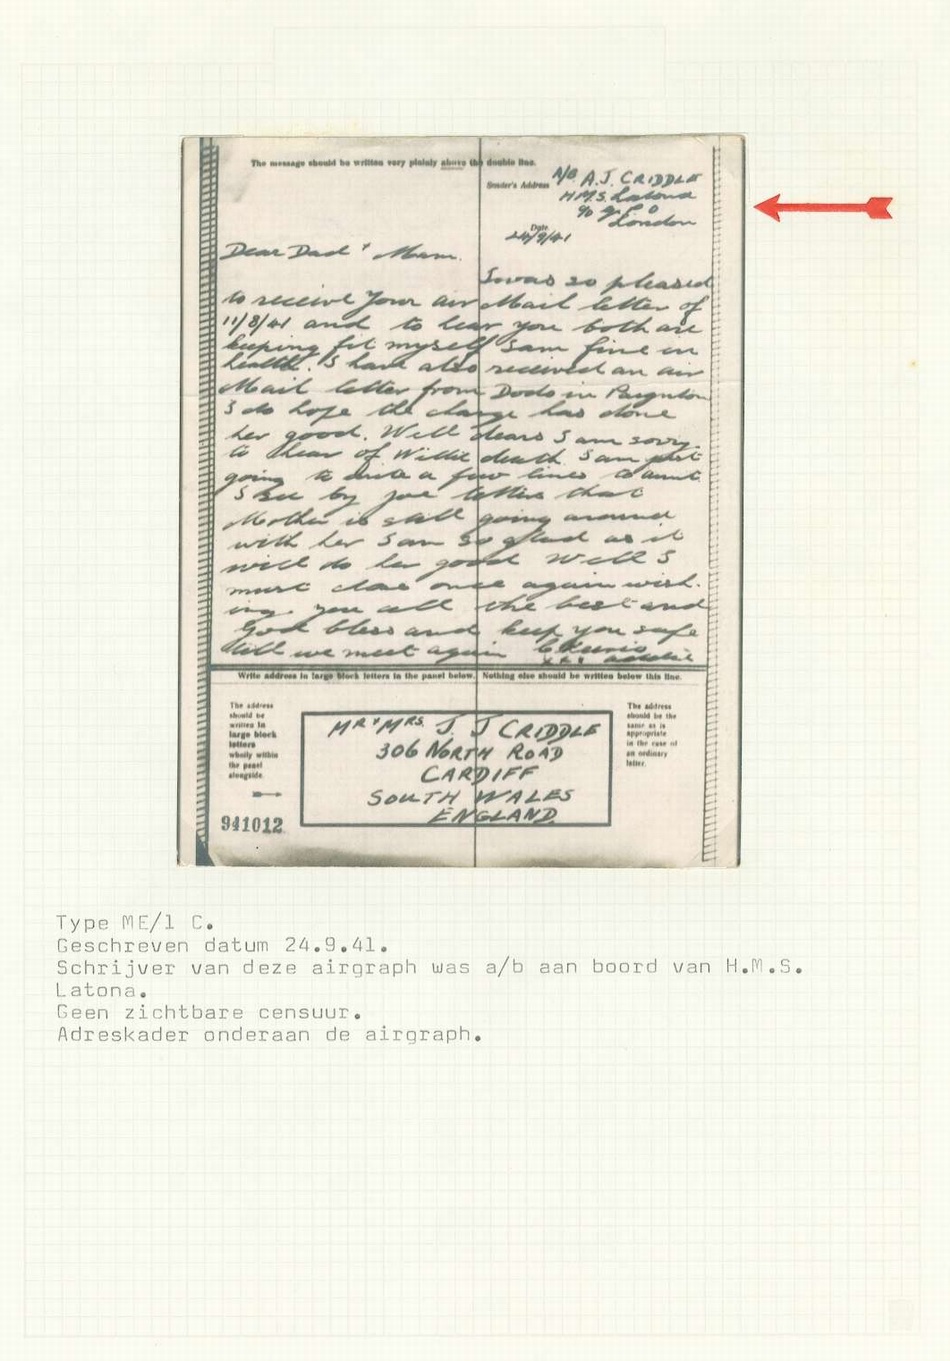 The message should be written very plainly above the double line.
Sender's Address
A/B A.J. CRIDDLE
H.M.S. Latona
c/o G.P.O
London
Date
24/9/41
Dear Dad & Mam.
I was so pleased
to receive your air Mail letter of
11/8/41 and to hear you both are
keeping fit myself I am fine in
health. I have also received an air
Mail letter from Dods in Paynton
I do hope the change has done
her good. Well dears I am sorry
to hear of Willie death. I am just
going to write a few lines to aunt
I see by joe letters that
Mother is still going around
with her I am so glad as it
will do her good Well I
must close once again wish-
ing you all the best and
God bless and keep you safe
till we meet again
Write address in large block letters in the panel below. Nothing else should be written below this line.
The address
should be
written in
large block
letters
wholly within
the panel
alongside.
MR & MRS. J. J CRIDDLE
306 NORTH ROAD
CARDIFF
SOUTH WALES
ENGLAND.
The address
should be the
same as is
appropriate
in the case of
an ordinary
letter.
941012
Type ME/1 C.
Geschreven datum 24.9.41.
Schrijver van deze airgraph was a/b aan boord van H.M.S.
Latona.
Geen zichtbare censuur.
Adreskader onderaan de airgraph.